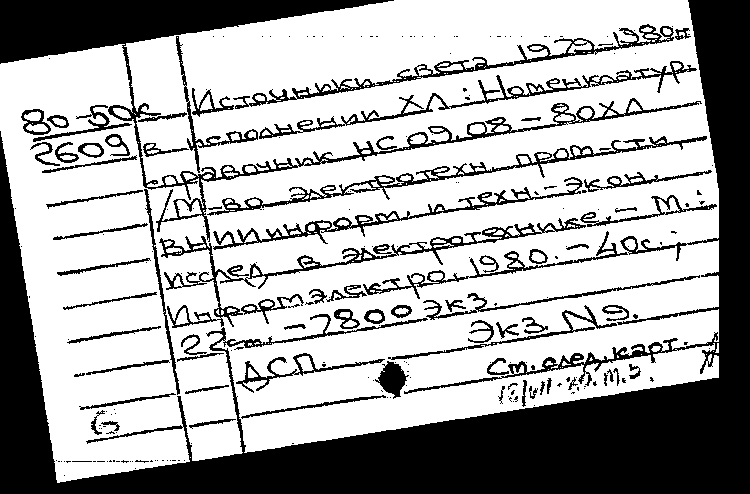 80-50к Источники света 1979-1980гг
2609 в исполнении ХЛ: Номенклатур.
справочник НС 09.08-80ХЛ
/М-во электротехн. пром-сти,
ВНИИинформ. и техн.-экон.
исслед. в электротехнике. - М.:
Информэлектро, 1980. - 40с.;
22см. - 7800 экз.
ДСП. Экз. N9.
Ст. след. карт.
6